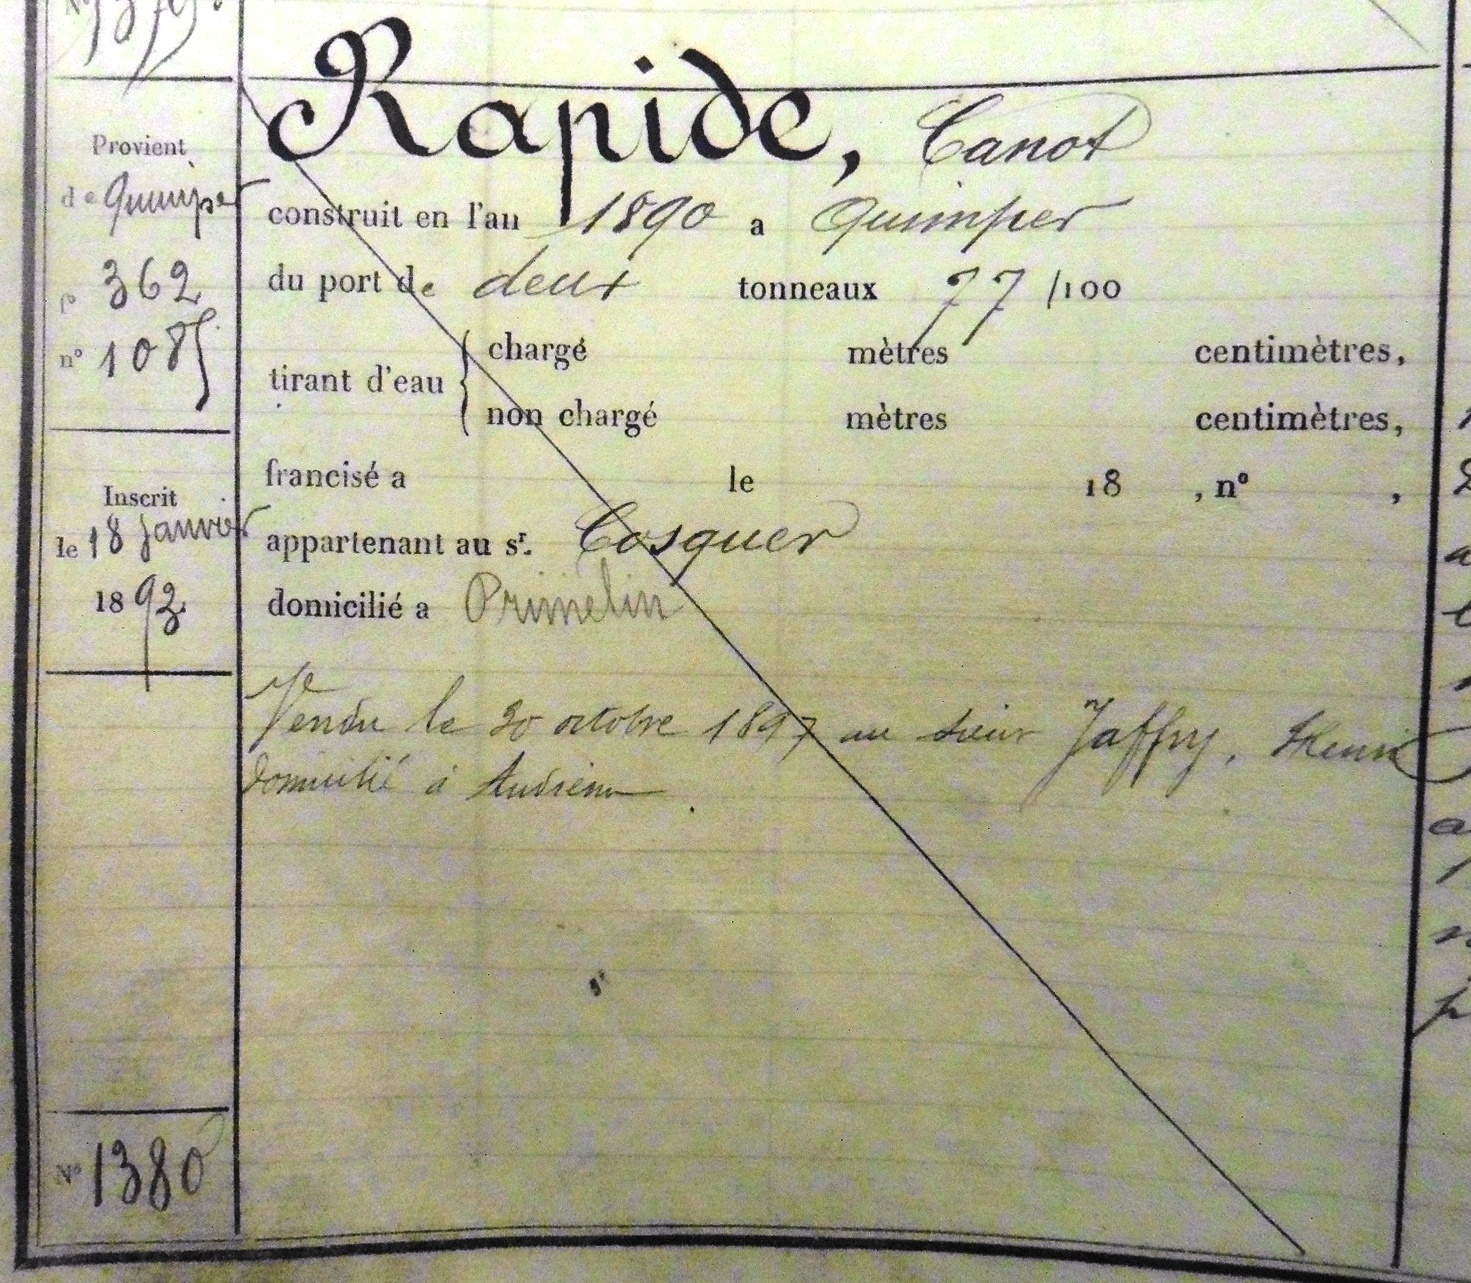 Rapide, Canot
Provient
de Quimper
construit en l'an 1890 a Quimper
fº 362
du port de deux tonneaux 77 /100
nº 1085
tirant d'eau { chargé mètres centimètres,
non chargé mètres centimètres,
francisé a le 18 , nº ,
Inscrit
le 18 Janvier
1893
appartenant au sr. Cosquer
domicilié a Primelin
Vendu le 30 octobre 1897 au sieur Jaffry, Henri
domicilié à Audierne.
Nº 1380